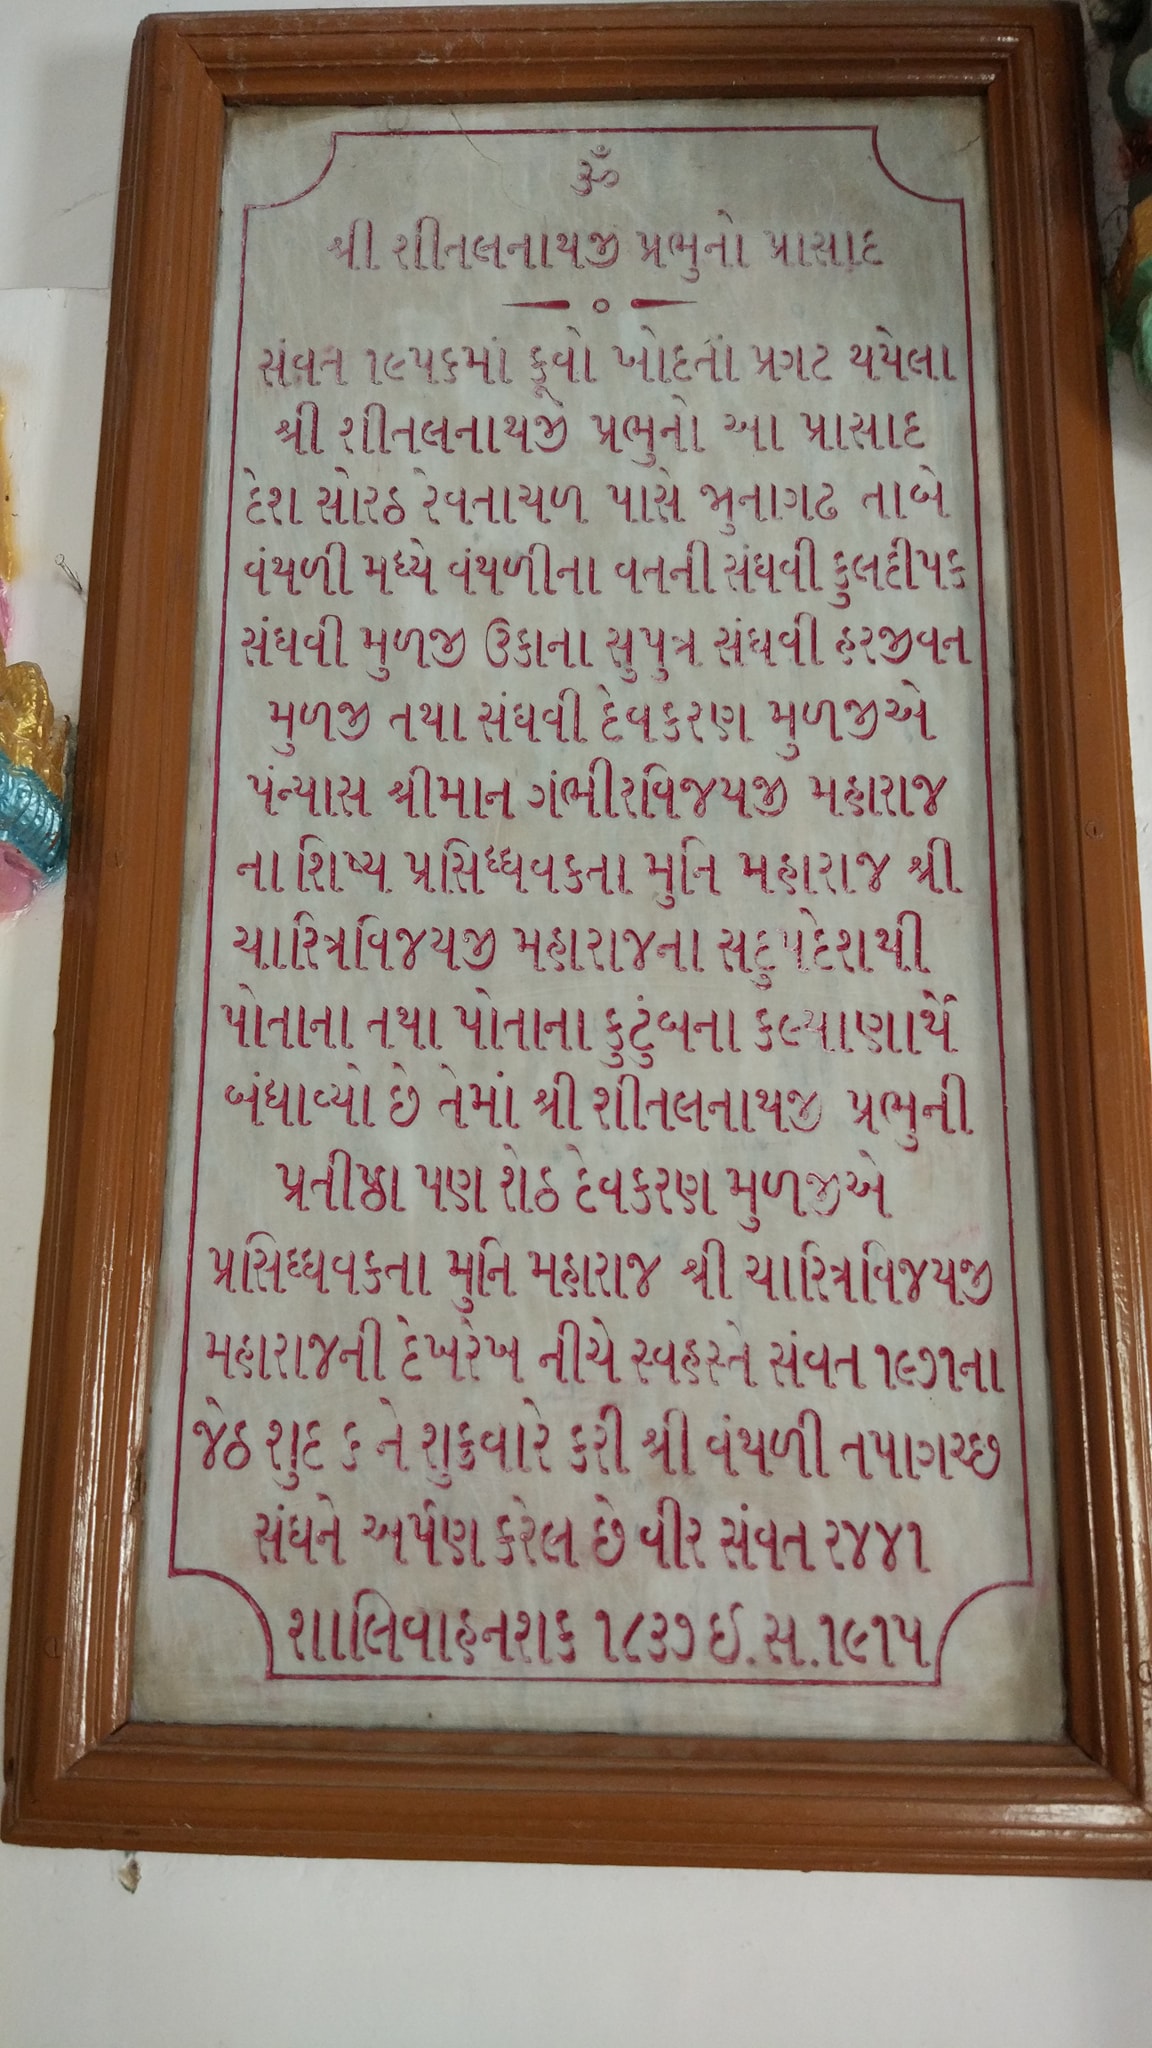 ૐ
શ્રી શીતલનાથજી પ્રભુનો પ્રાસાદ
સંવત ૧૯૫૬માં કૂવો ખોદતાં પ્રગટ થયેલા
શ્રી શીતલનાથજી પ્રભુનો આ પ્રાસાદ
દેશ સોરઠ રેવતાચળ પાસે જુનાગઢ તાબે
વંથળી મધ્યે વંથળીના વતની સંઘવી કુલદીપક
સંઘવી મુળજી ઉકાના સુપુત્ર સંઘવી હરજીવન
મુળજી તથા સંઘવી દેવકરણ મુળજીએ
પંન્યાસ શ્રીમાન ગંભીરવિજયજી મહારાજ
ના શિષ્ય પ્રસિધ્ધવકતા મુનિ મહારાજ શ્રી
ચારિત્રવિજયજી મહારાજના સદુપદેશથી
પોતાના તથા પોતાના કુટુંબના કલ્યાણાર્થે
બંધાવ્યો છે તેમાં શ્રી શીતલનાથજી પ્રભુની
પ્રતીષ્ઠા પણ શેઠ દેવકરણ મુળજીએ
પ્રસિધ્ધવકતા મુનિ મહારાજ શ્રી ચારિત્રવિજયજી
મહારાજની દેખરેખ નીચે સ્વહસ્તે સંવત ૧૯૭૧ના
જેઠ શુદ ૬ ને શુક્રવારે કરી શ્રી વંથળી તપાગચ્છ
સંઘને અર્પણ કરેલ છે વીર સંવત ૨૪૪૧
શાલિવાહનશક ૧૮૩૭ ઈ.સ.૧૯૧૫